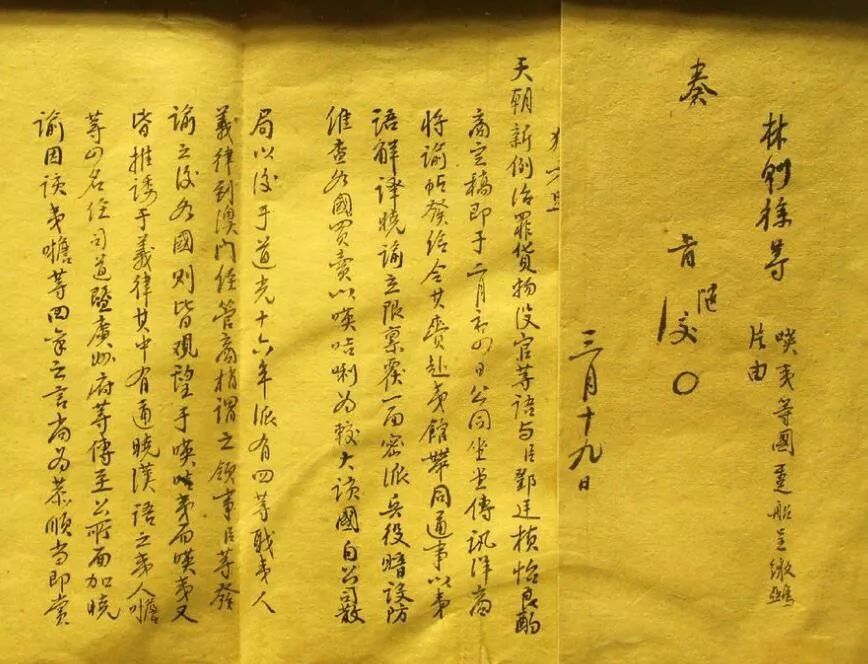 林則徐等 嘆夷等國躉船呈繳鴉
片由
奏
硃
三月十九日
天朝新例治罪貨物沒官等語与臣鄧廷楨怡良酌
商定稿即于二月初四日公同坐堂傳訊洋商
將諭帖發给令其賫赴夷館帶同通事以夷
語解譯曉諭立限禀覆一面密派兵役暗設防
維查各國買賣以嘆咭唎为較大该國自公司散
局以後于道光十六年派有四等職夷人
義律到澳门经管商梢謂之领事臣等發
諭之後各國则皆观望于嘆咭夷而嘆夷又
皆推諉于義律其中有通曉漢語之夷人𠼤
等四名经司道暨廣州府等傳至公所面加曉
諭因该夷𠼤等四拿之言尚为恭順當即賞